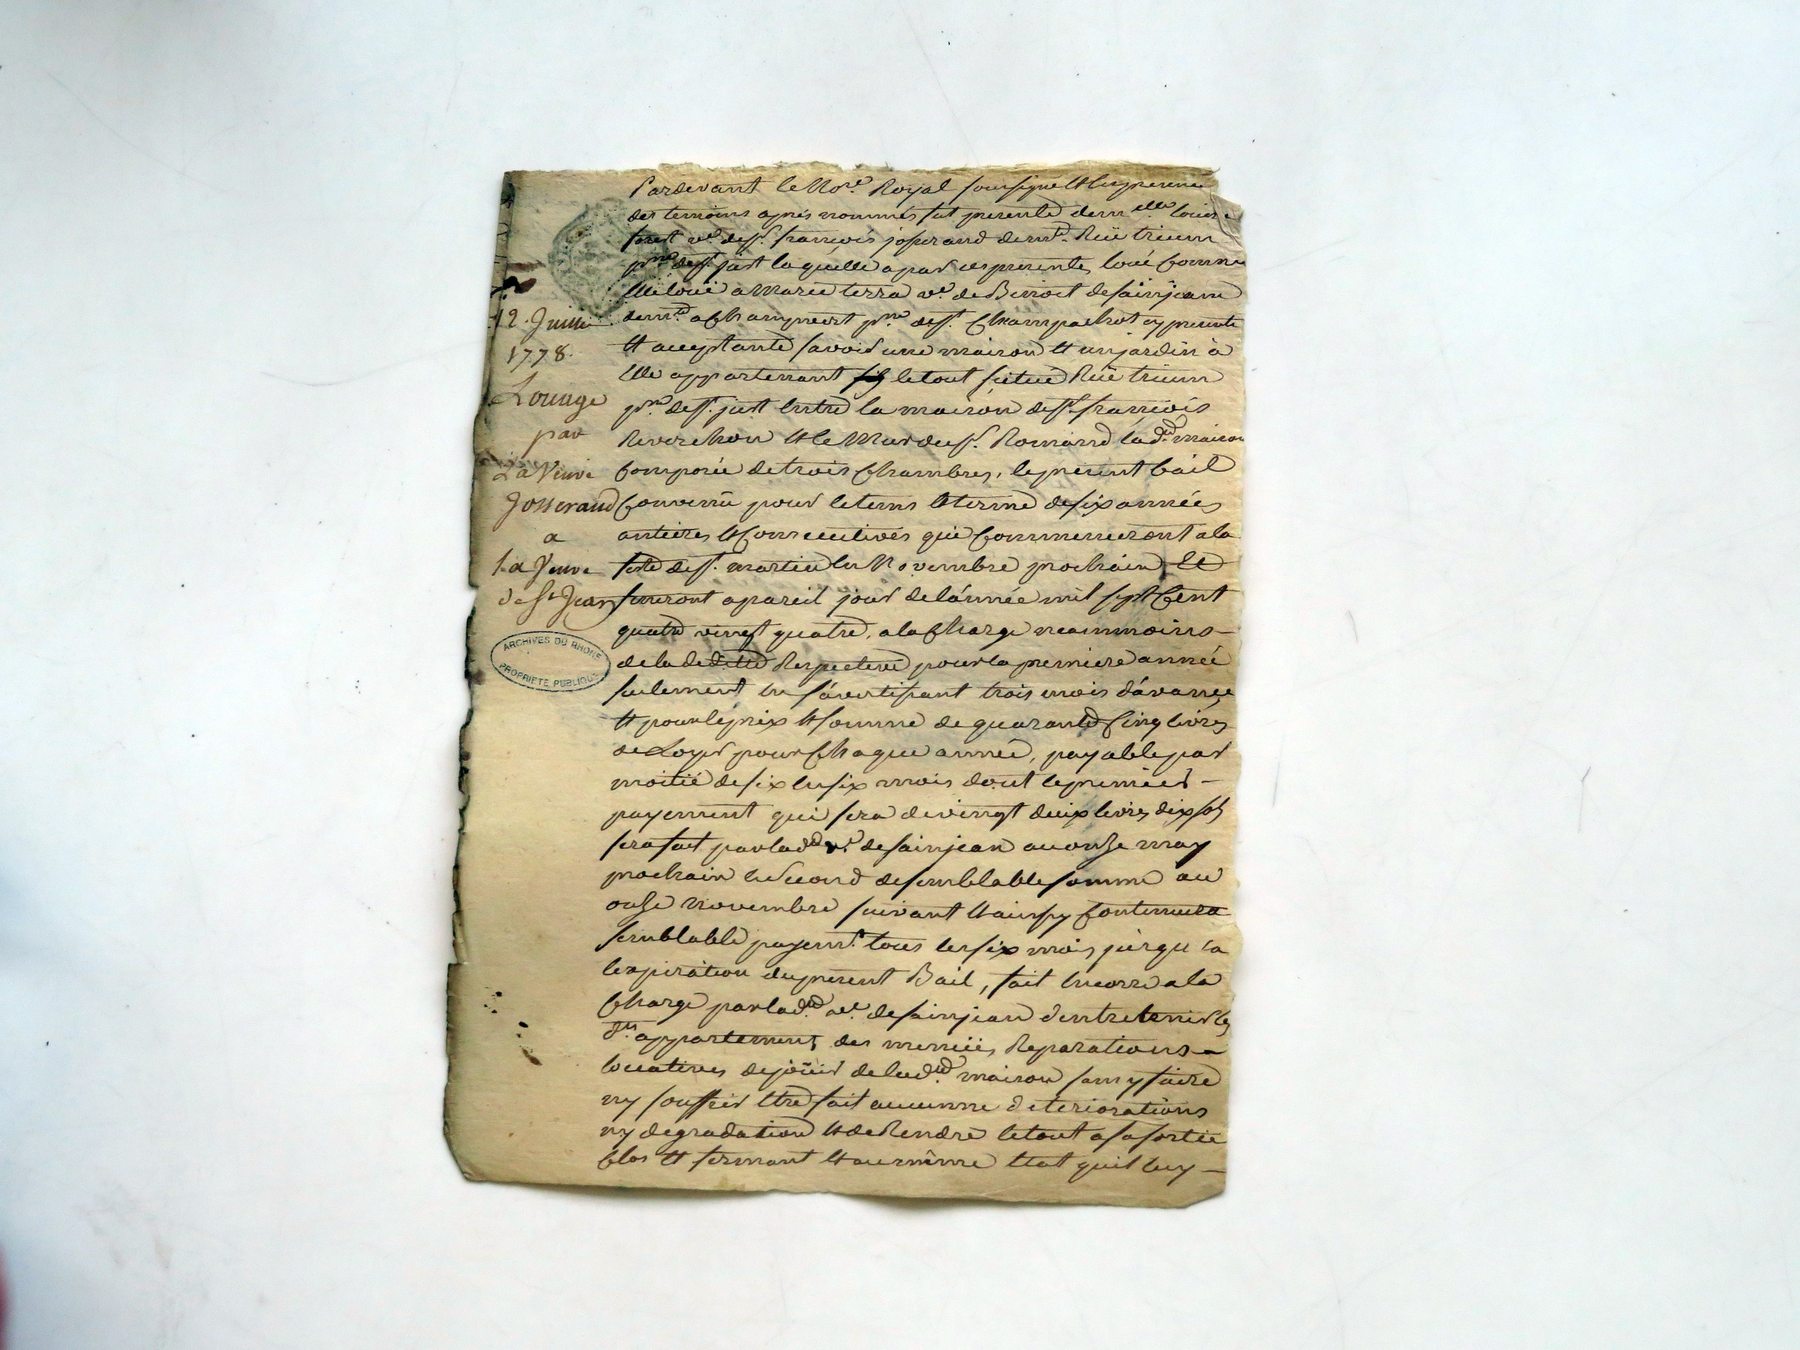 12. Juillet
1778.
Louage
par
La Veuve
Josserand
a
La Veuve
de St Jean
ARCHIVES DU RHONE
PROPRIETE PUBLIQUE
Pardevant le Nore. Royal soussigné et en presence
des temoins après nommés fut presente demlle. Louise
foret ve. de Sr. françois josserand demte. Rüe trium
psse de St. just laquelle a par ces presentes loué comme
elle loue a Marie terra ve. de Benoit desainjean
demte. a Champvert psse de St. cy presente
et acceptante savoir une maison et un jardin à
elle appartenant le tout situé Rüe trium
psse de St. just entre la maison de Sr. françois
Reverchon et le Mur du Sr. Romand lade. maison
Composée de trois Chambres, le present bail
Convenû pour le tems et terme de six années
antieres et Consecutives qui Commenceront a la
feste de St. martin en Novembre prochain et
finiront a pareil jour de l'année mil sept Cent
quatre vingt quatre, a la Charge neammoins -
de la deditte Respective pour la premiere année
seulement en s'avertissant trois mois d'avance
et pour le prix et somme de quarante Cinq livres
de Loyer pour Chaque année, payable par
moitié de six en six mois dont le premier -
payement qui sera de vingt deux livres dix sols
sera fait par lade ve. desainjean au onze may
prochain le second de semblable somme au
onze novembre suivant et ainsy Continuer
semblable payemt. tous les six mois jusqu'a
l'expiration du present Bail, fait encorre a la
Charge par lade. ve. desainjean d'entretenir les
ds. appartements des menües Reparations
locatives de joüir de lade. maison sans y faire
ny souffrir etre fait aucunne deteriorations
ny degradation et de Rendre le tout a sa sortie
Clos et fermant et au même etat qu'il luy -